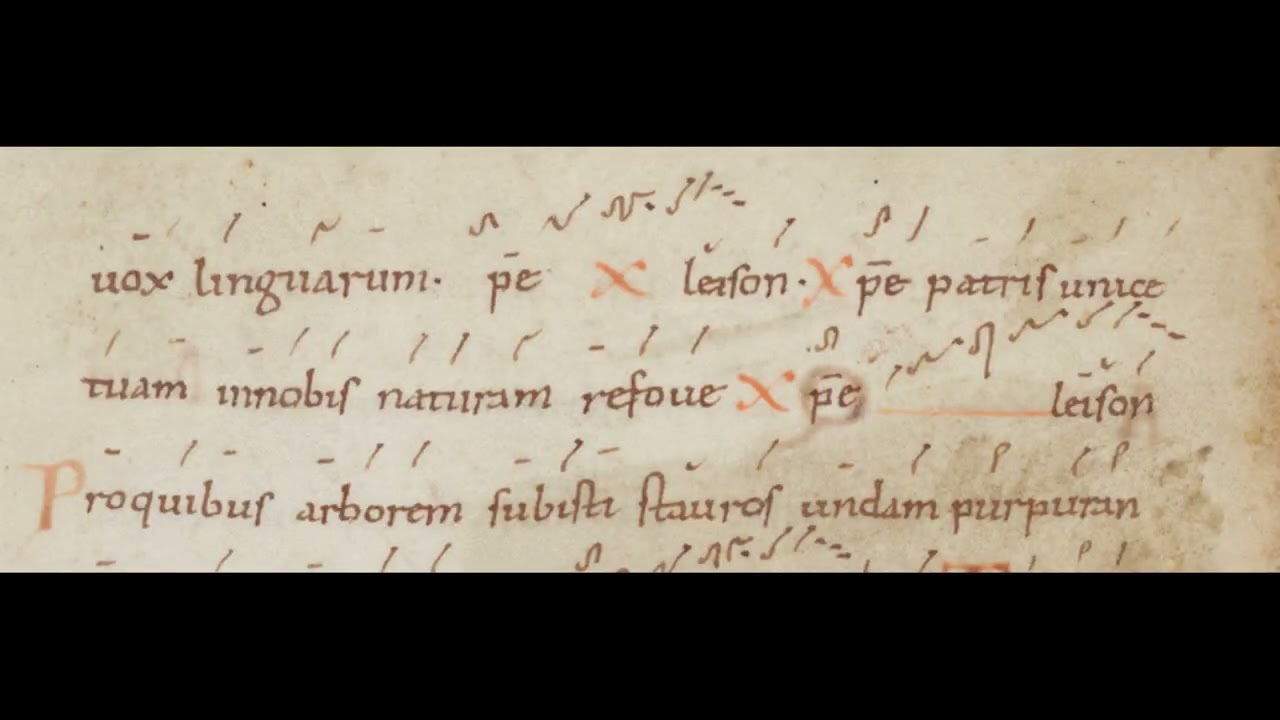 uox linguarum. p̄e X leison. X p̄e patris unice
tuam innobis naturam refoue X p̄e leison
Proquibus arborem subisti stauros undam purpuran